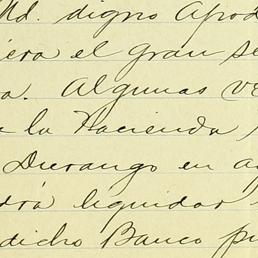 Md. digno Apod
iera el gran se
a. Algunas ve
la Hacienda
Durango en ag
drá liquidar
dicho Banco pu